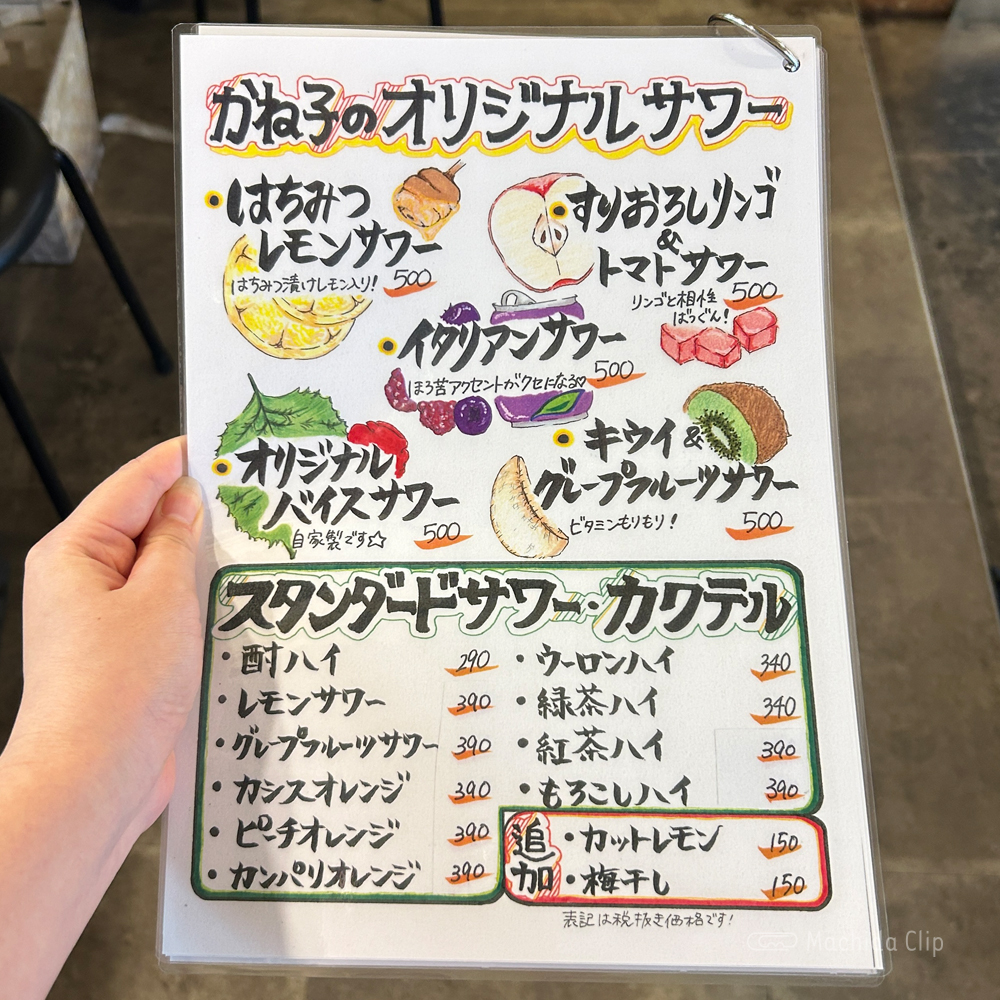 かね子のオリジナルサワー
はちみつ
レモンサワー
はちみつ漬けレモン入り! 500
すりおろしリンゴ
&
トマトサワー
リンゴと相性
ばつぐん! 500
イタリアンサワー
ほろ苦アクセントがクセになる♡ 500
オリジナル
バイスサワー
自家製です☆ 500
キウイ&
グレープフルーツサワー
ビタミンもりもり! 500
スタンダードサワー・カクテル
・酎ハイ 290
・レモンサワー 390
・グレープフルーツサワー 390
・カシスオレンジ 390
・ピーチオレンジ 390
・カンパリオレンジ 390
・ウーロンハイ 340
・緑茶ハイ 340
・紅茶ハイ 390
・もろこしハイ 390
追加
・カットレモン 150
・梅干し 150
表記は税抜き価格です!
Machida Clip